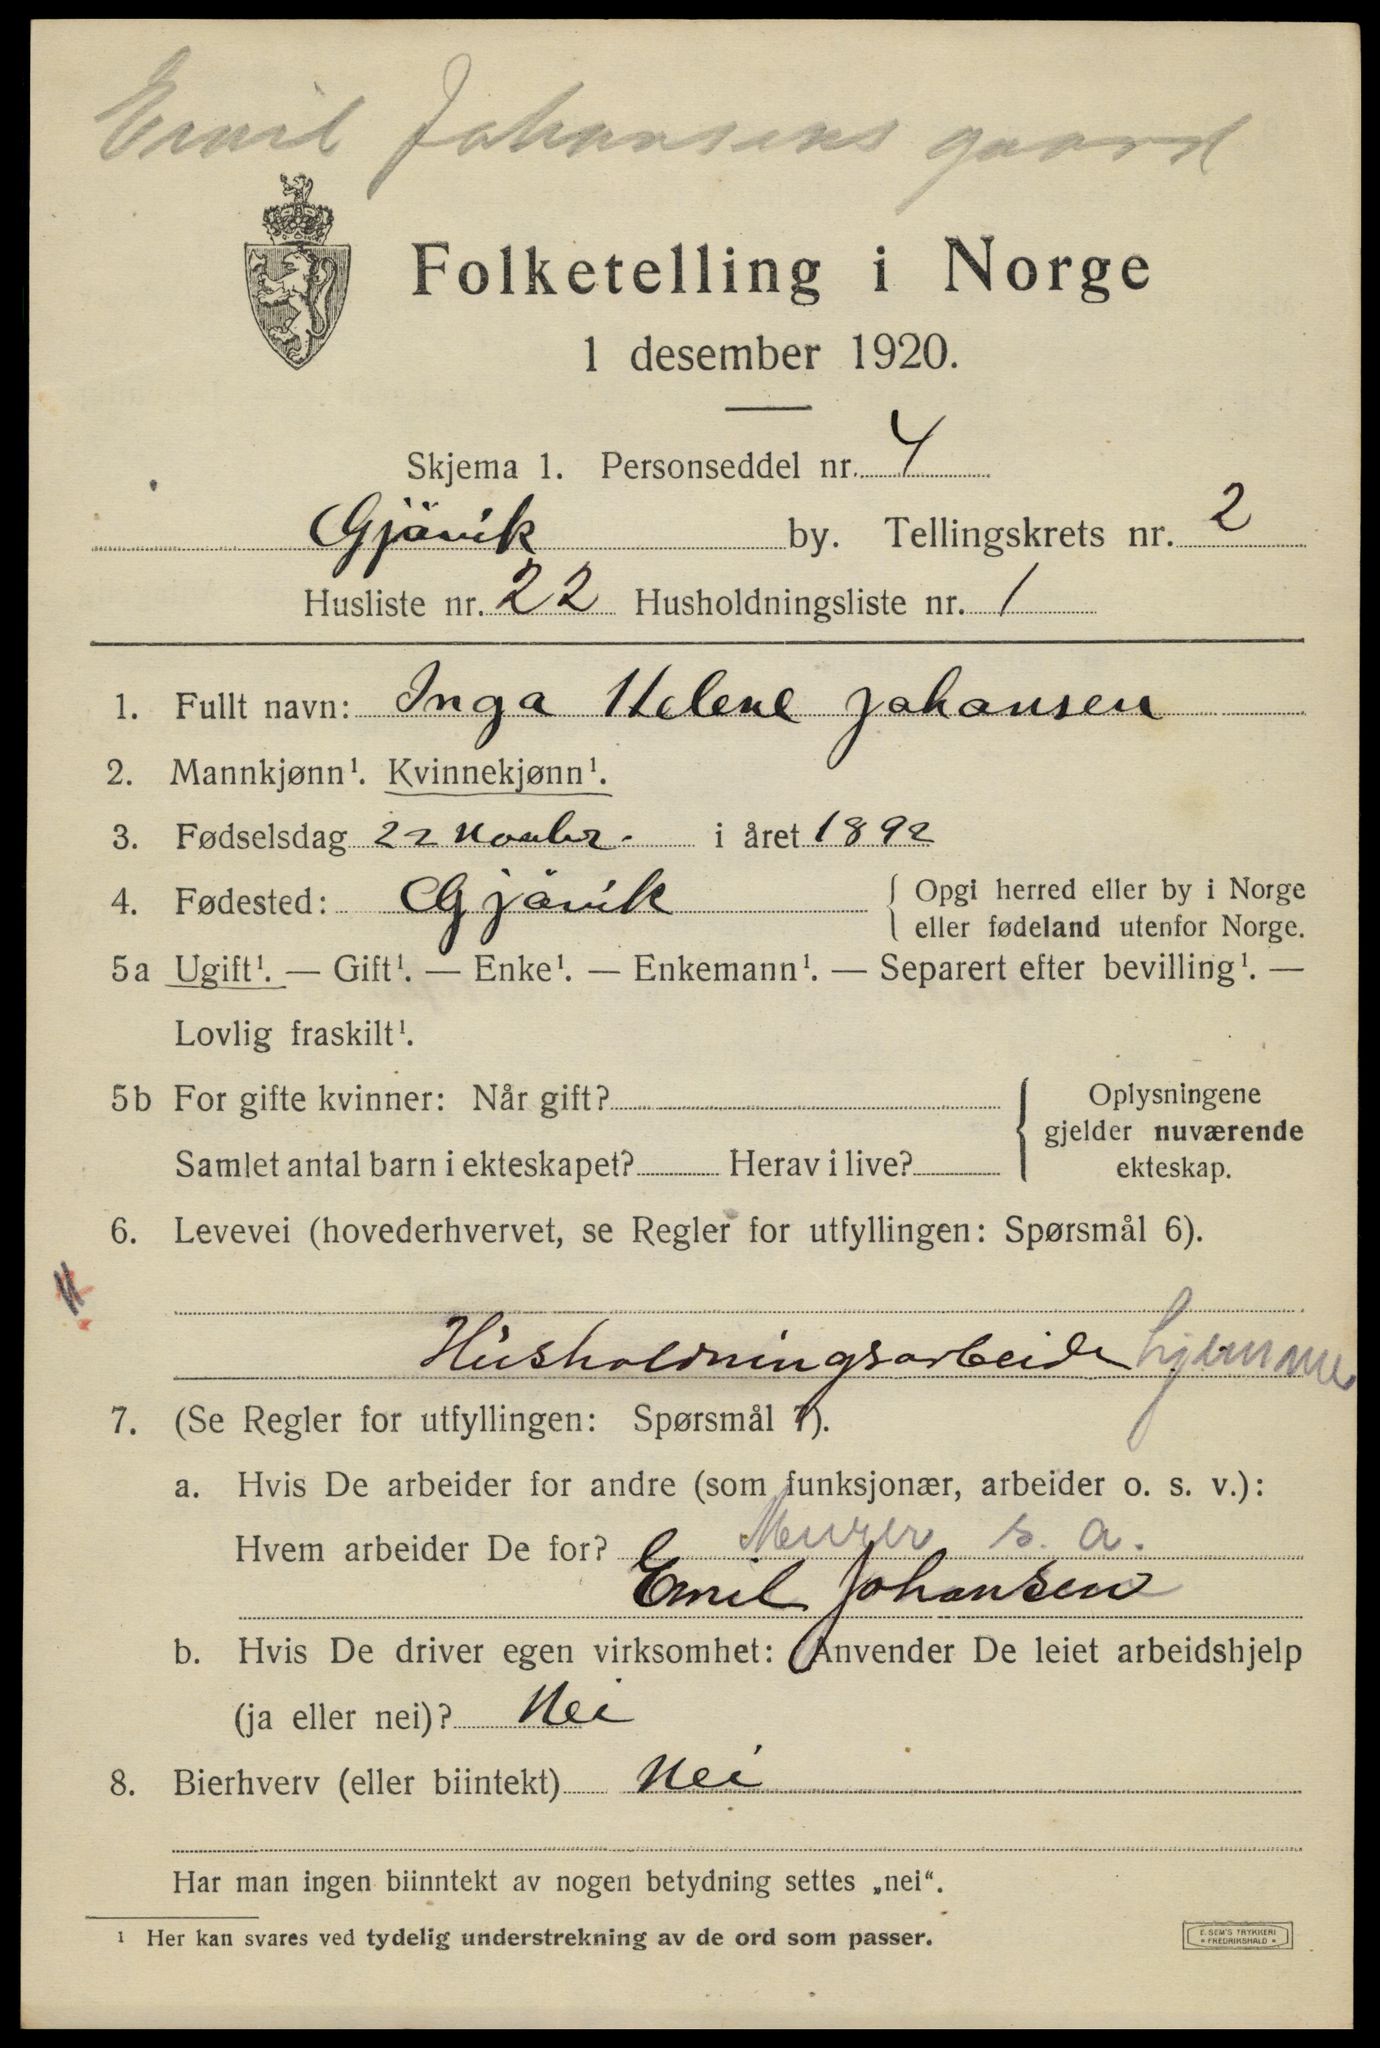 Emil Johansens gaard
Folketelling i Norge
1 desember 1920.
Skjema 1. Personseddel nr. 4
Gjövik by. Tellingskrets nr. 2
Husliste nr. 22 Husholdningsliste nr. 1
1. Fullt navn: Inga Helene Johansen
2. Mannkjønn¹. Kvinnekjønn¹.
3. Fødselsdag 22 Novbr. i året 1892
4. Fødested: Gjövik { Opgi herred eller by i Norge
eller fødeland utenfor Norge.
5a Ugift¹. — Gift¹. — Enke¹. — Enkemann¹. — Separert efter bevilling¹. —
Lovlig fraskilt¹.
5b For gifte kvinner: Når gift?
Samlet antal barn i ekteskapet? Herav i live?
{ Oplysningene
gjelder nuværende
ekteskap.
6. Levevei (hovederhvervet, se Regler for utfyllingen: Spørsmål 6).
Husholdningsarbeide hjemme
7. (Se Regler for utfyllingen: Spørsmål 7).
a. Hvis De arbeider for andre (som funksjonær, arbeider o. s. v.):
Hvem arbeider De for? Murer s. a.
Emil Johansen
b. Hvis De driver egen virksomhet: Anvender De leiet arbeidshjelp
(ja eller nei)? Nei
8. Bierhverv (eller biintekt) Nei
Har man ingen biinntekt av nogen betydning settes „nei“.
¹ Her kan svares ved tydelig understrekning av de ord som passer.
E. SEM'S TRYKKERI
* FREDRIKSHALD *